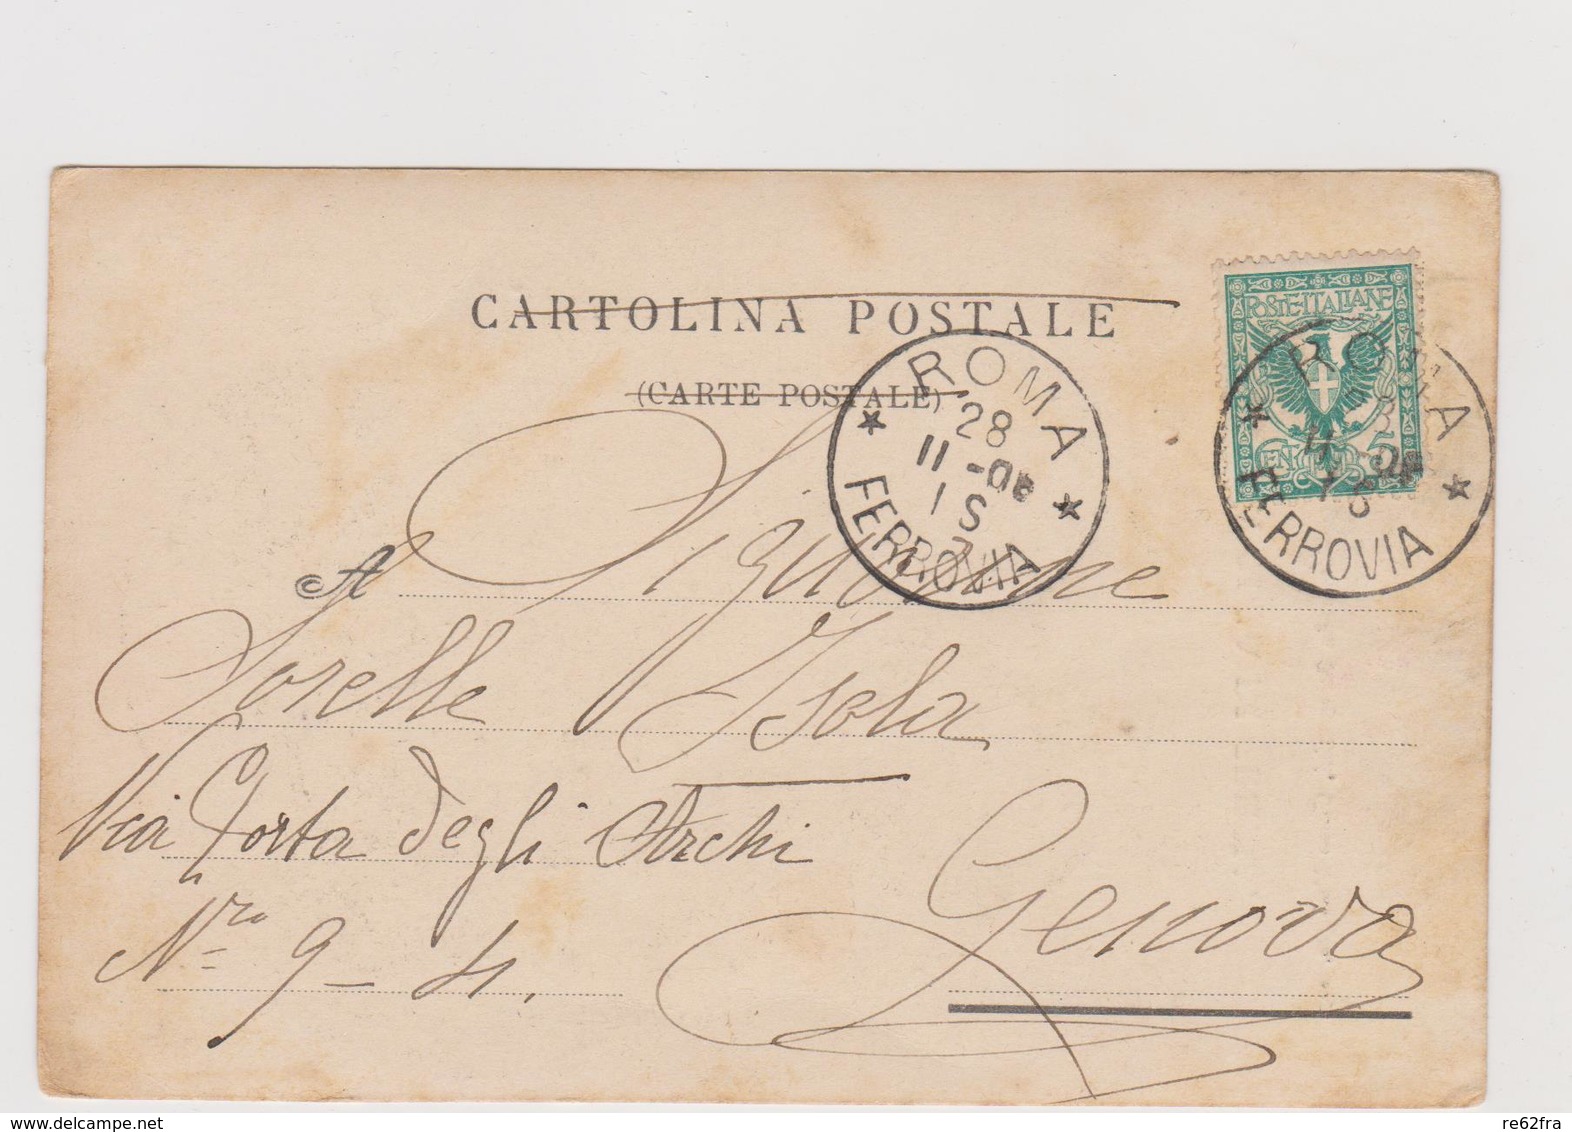 CARTOLINA POSTALE
(CARTE POSTALE)
POSTE ITALIANE
CEN. 5
ROMA
28
11
1 S
FERROVIA
ROMA
FERROVIA
A Signorine
Sorelle Isola
Via Porta degli Archi
Nro 9 – 4.
Genova
www.delcampe.net
re62fra